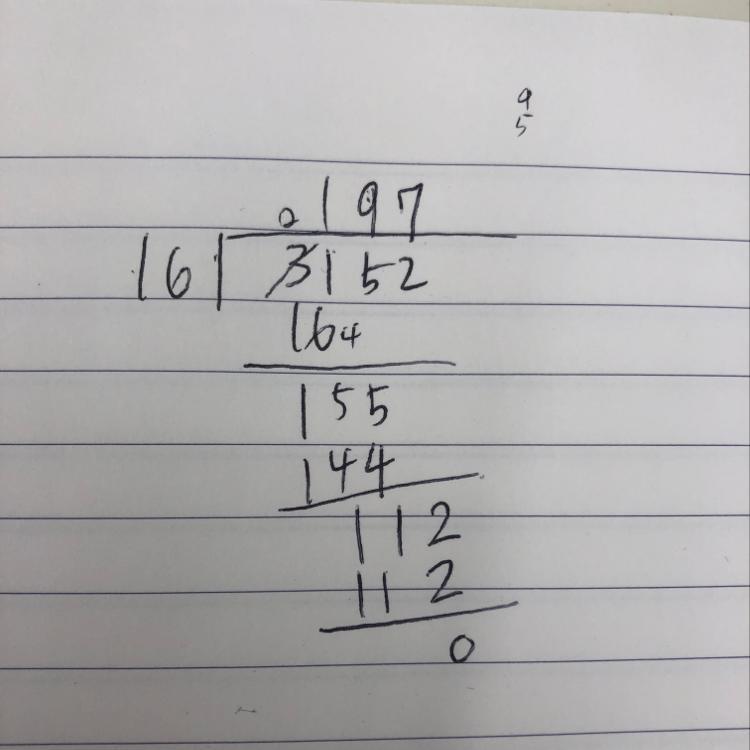 9
5
0197
16 3152
164
155
144
112
112
0